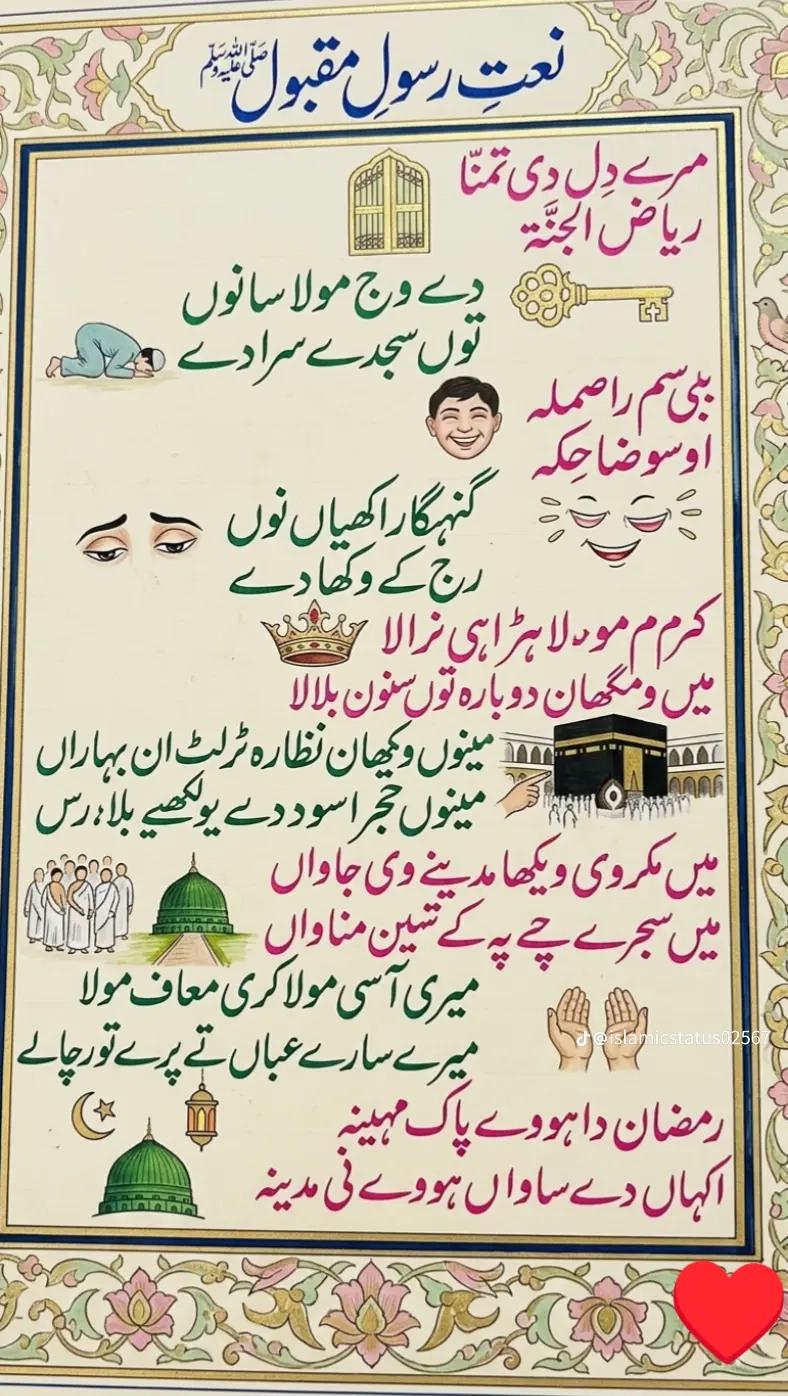 نعتِ رسولِ مقبول ﷺ
مرے دِل دی تمنّا
ریاض الجنَّۃ
دے وچ مولا سانوں
توں سجدے سرا دے
ببی سم راضملہ
اوسو ضاحِکہ
گنہگار اکھیاں نوں
رج کے وکھا دے
کرم م مولا ہڑا ہی نرالا
میں ومگھان دوبارہ توں سنون بلالا
مینوں وکھان نظارہ ٹرلٹ ان بہاراں
مینوں حجر اسود دے یولکھیے بلا،رس
میں مکر وی ویکھا مدینے وی جاواں
میں سجرے چے پہ کے تسین مناواں
میری آسی مولا کری معاف مولا
میرے سارے عباں تے پرے تورچالے
@islamicstatus02567
رمضان دا ہووے پاک مہینہ
اکہاں دے ساواں ہووے نی مدینہ